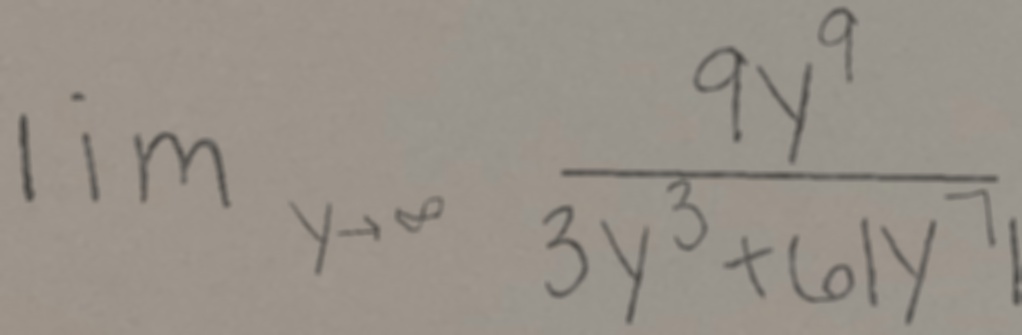 lim y→∞ 9y^9 / 3y^3+61y^7